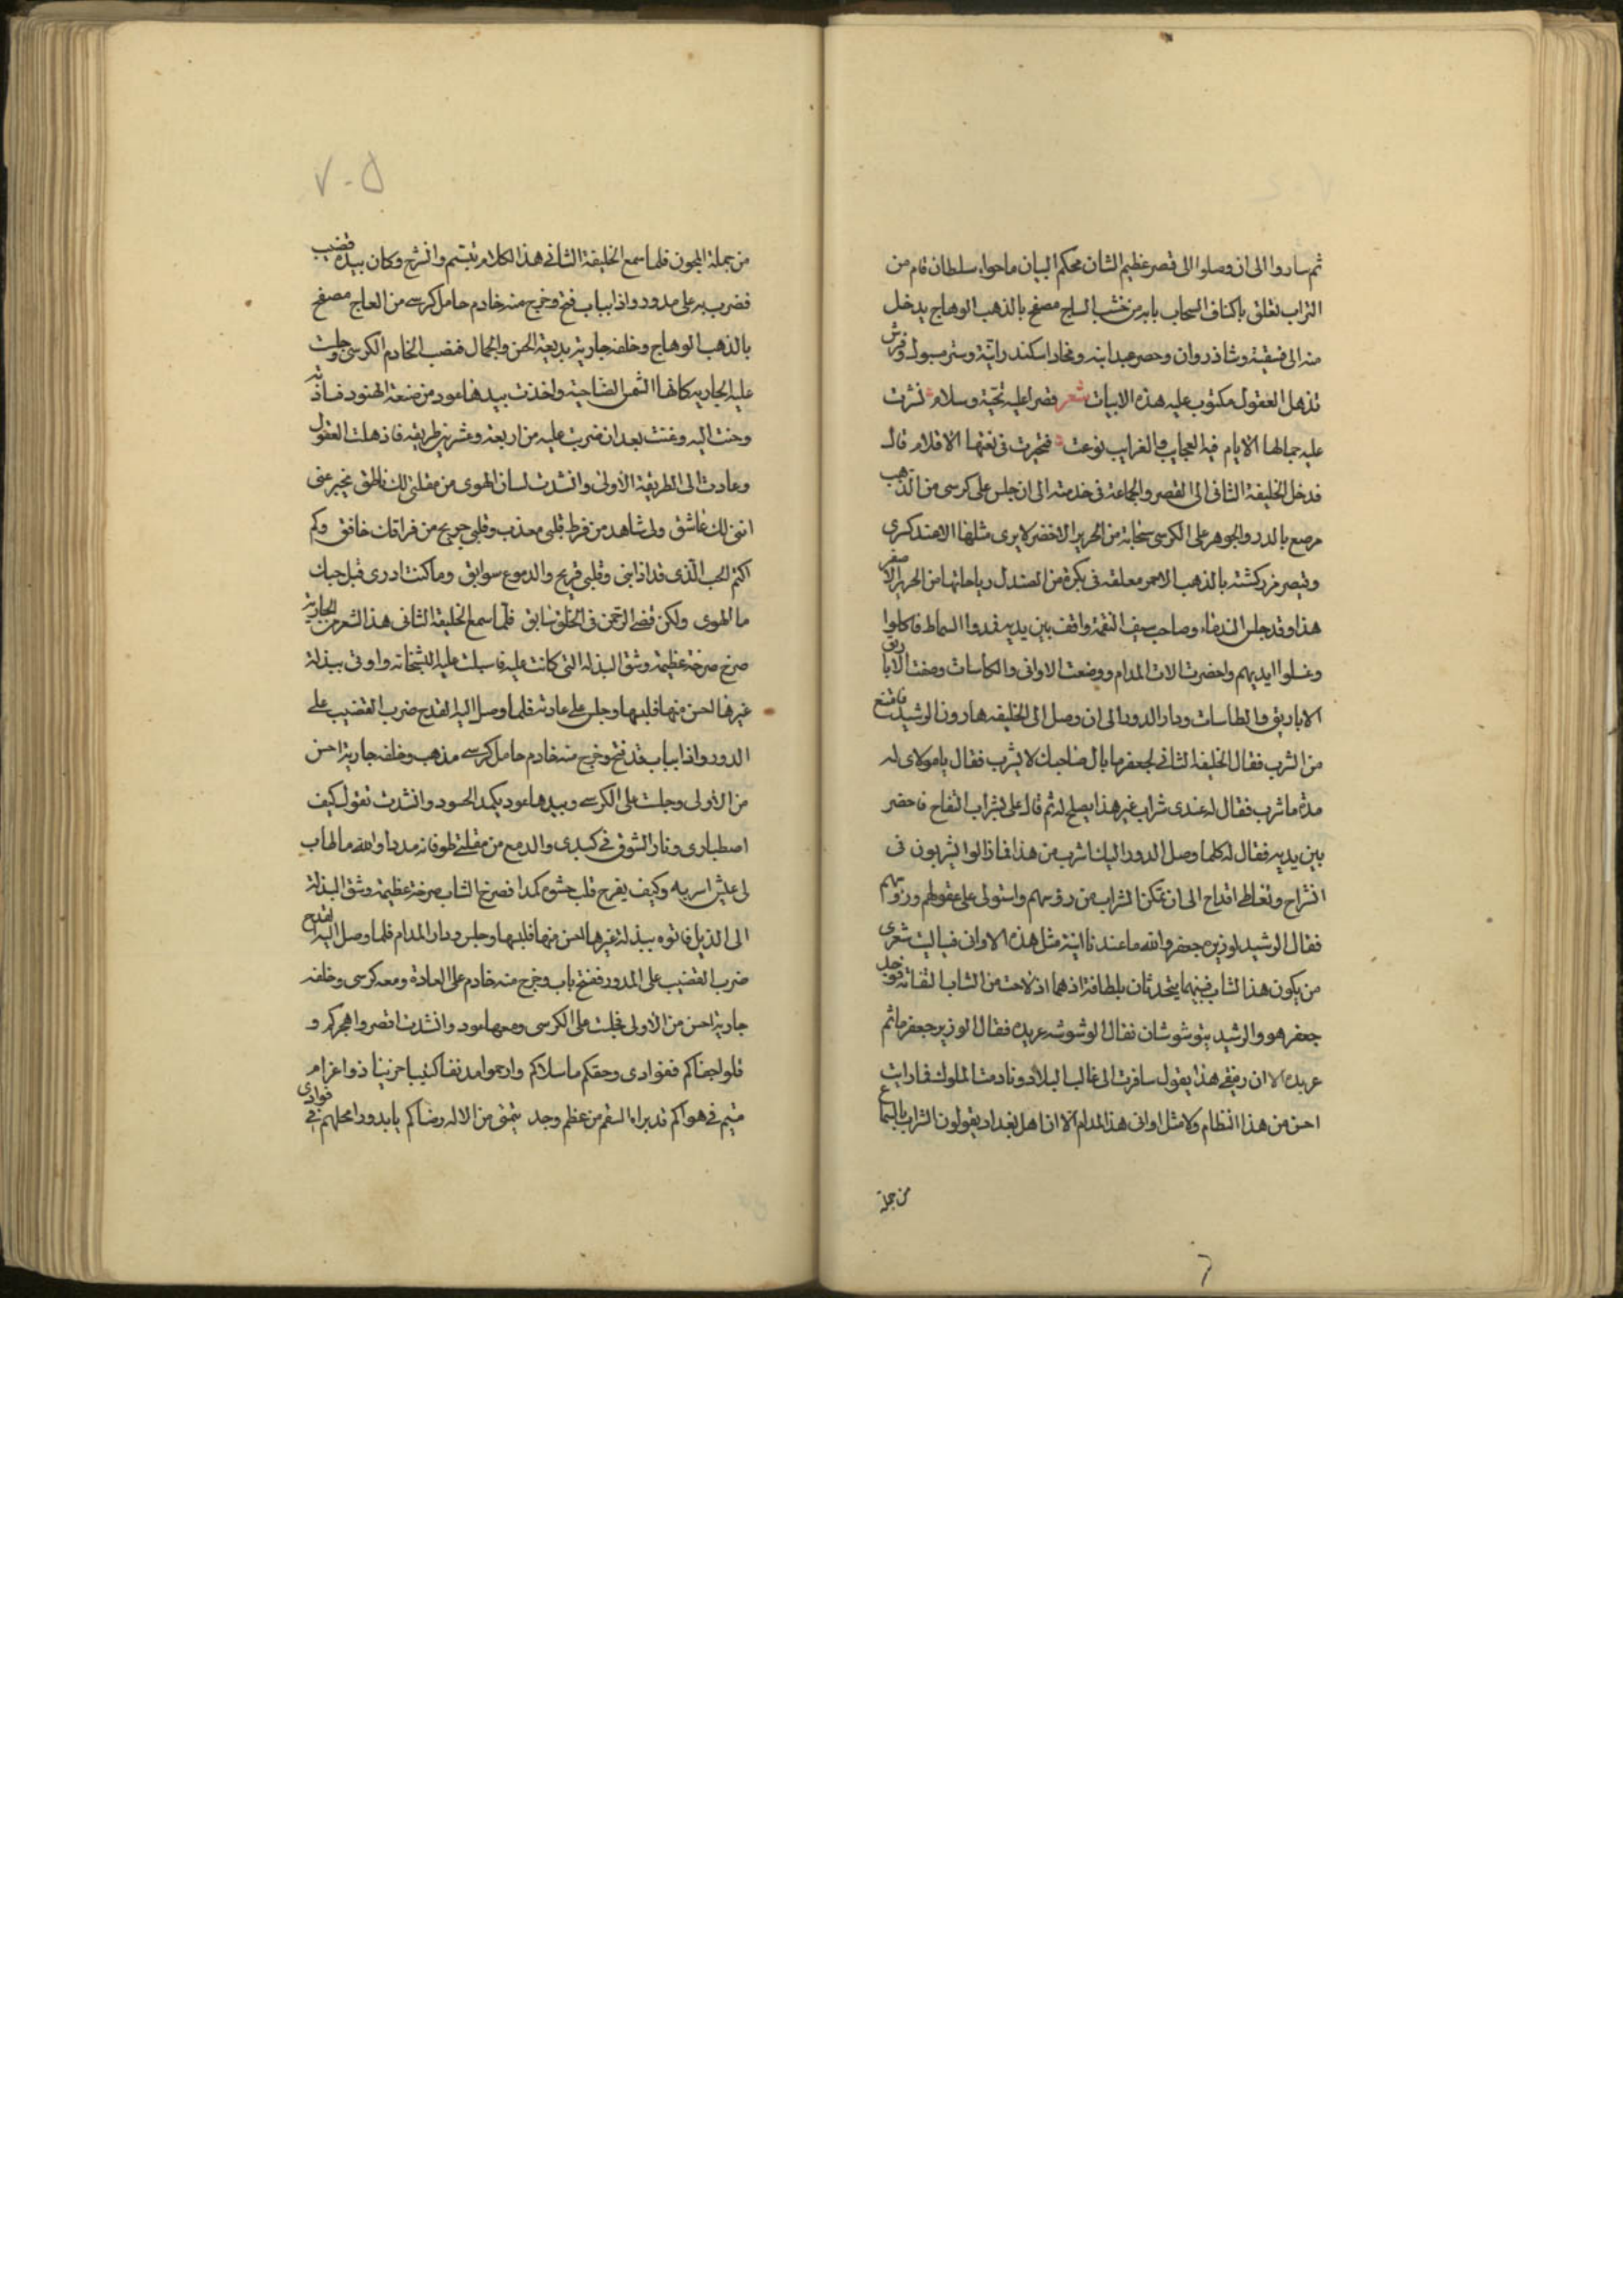 ثم ساروا الى ان وصلوا الى قصر عظيم الشان محكم البيان ما حواه سلطان قام من
التراب تعلق باكناف السحاب بابه من خشب الساج مصفح بالذهب الوهاج يدخل
منه الى فسقية وشاذروان وحصر عبدانيه ومخاد اسكندرانية وستر مسبول وفرش
تذهل العقول مكتوب عليه هذه الابيات شعر قصر عليه تحية وسلام نثرت
عليه جمالها الايام فيه العجايب والغرايب نوعت فتحيرت في نعتها الاقلام قال
فدخل الخليفة الثاني الى القصر والجماعة في خدمته الى ان جلس على كرسي من الذهب
مرصع بالدر والجوهر على الكرسي سحابة من الحرير الاخضر لا يرى مثلها الا عند كسرى
وقيصر مزركشة بالذهب الاحمر معلقه في بكرة من الصندل رباحاتها من الحرير الاصفر
هذا وقد جلس الندماء وصاحب سيف النقمة واقف بين يديه فمدوا السماط فاكلوا
وغسلوا ايديهم واحضرت الات المدام ووضعت الاواني والكاسات وصفت الاباريق
الاباريق والطاسات ودار الدور الى ان وصل الى الخليفه هارون الرشيد فامتنع
من الشرب فقال الخليفة الثاني لجعفر ما بال صاحبك لا يشرب فقال يا مولاي له
مدة ما شرب فقال له عندي شراب غير هذا يصلح له ثم قال علي بشراب التفاح فاحضر
بين يديه فقال له كلما وصل الدور اليك اشرب من هذا فما زالوا يشربون في
انشراح وتعاطي اقداح الى ان تمكن الشراب من رؤسهم واستولى على عقولهم ورؤسهم
فقال الرشيد لوزيره جعفر والله ما عندنا انية مثل هذه الاواني فيا ليت شعري
من يكون هذا الشاب فبينما يتحدثان بلطافة اذ هما اذ لاحت من الشاب التفاته فوجد
جعفر هو والرشيد يتوشوشان فقال الوشوشه عربده فقال الوزير جعفر ما ثم
عربده الا ان رفيقي هذا يقول سافرت الى غالب البلاد ونادمت الملوك فما رايت
احسن من هذا النظام ولا مثل اواني هذا المدام الا ان اهل بغداد يقولون الشراب بلا سماع
من جملة
٧٠٥
من جملة المجون فلما سمع الخليفة الثاني هذا الكلام تبتسم وانشرح وكان بيده قضيب
فضرب به على مدور واذا بباب فتح وخرج منه خادم حامل كرسي من العاج مصفح
بالذهب الوهاج وخلفه جارية بديعة الحسن والجمال فنصب الخادم الكرسي وجلست
عليه الجاريه كانها الشمس الضاحية واخذت بيدها عود من صنعة الهنود
وحنت اليه وغنت بعد ان ضربت عليه من اربعة وعشرين طريقه فاذهلت العقول
وعادت الى الطريقة الاولى وانشدت لسان الهوى من مقلتي لك ناطق يخبر عني
انني لك عاشق ولي شاهد من فرط قلبي معذب وقلبي جريح من فراقك خافق وكم
اكتم الحب الذي قد اذابني وقلبي قريح والدموع سوابق وما كنت ادري قبل حبك
ما الهوى ولكن قضي الرحمن في الخلق سابق فلما سمع الخليفة الثاني هذا الشعر من الجارية
صرخ صرخة عظيمة وشق البذله التي كانت عليه فاسبلت عليه البشخانه واوتي ببذلة
غيرها احسن منها فلبسها وجلس على عادته فلما وصل اليه القدح ضرب القضيب على
الدور واذا بباب قد فتح وخرج منه خادم حامل كرسي مذهب وخلفه جارية احسن
من الاولى وجلست على الكرسي وبيدها عود يكمد الحسود وانشدت تقول كيف
اصطباري ونار الشوق في كبدي والدمع من مقلتي طوفانه مددا والله ما طاب
لي عيش اسر به وكيف يفرح قلب حشوه كمدا فصرخ الشاب صرخة عظيمة وشق البذلة
الى الذيل فاتوه ببذلة غيرها احسن منها فلبسها وجلس ودار المدام فلما وصل اليه القدح
ضرب القضيب على المدور ففتح باب وخرج منه خادم على العادة ومعه كرسي وخلفه
جارية احسن من الاولى فجلست على الكرسي ومعها عود وانشدت اقصروا هجركم و
قلوا جفاكم ففوادي وحقكم ما سلاكم وارحموا مدنفا كئيبا حزينا ذوا غرام
متيم في هواكم قد براه السقم من عظم وجد يتمنى من الاله رضاكم يا بدورا محلهم في فوادي